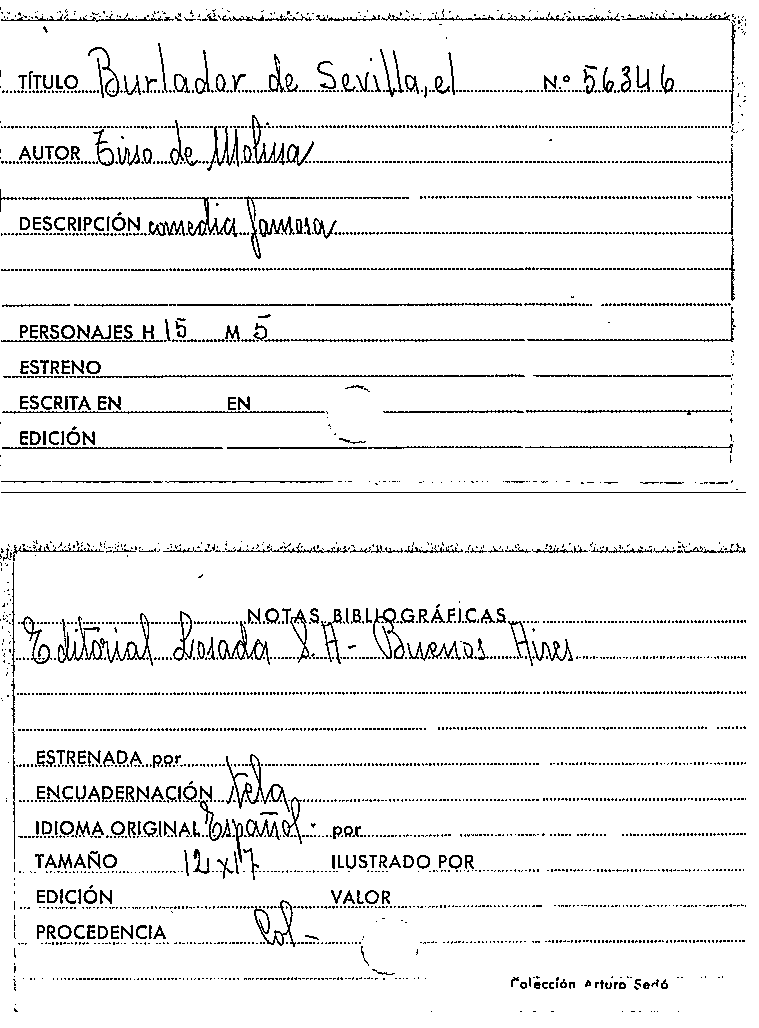 TÍTULO Burlador de Sevilla, el Nº 56346
AUTOR Tirso de Molina
DESCRIPCIÓN comedia famosa
PERSONAJES H 15 M 5
ESTRENO
ESCRITA EN EN
EDICIÓN
NOTAS BIBLIOGRÁFICAS
Editorial Losada S.A - Buenos Aires
ESTRENADA por
ENCUADERNACIÓN tela
IDIOMA ORIGINAL Español. por
TAMAÑO 12x17 ILUSTRADO POR
EDICIÓN VALOR
PROCEDENCIA Col-
Colección Arturo Sedó